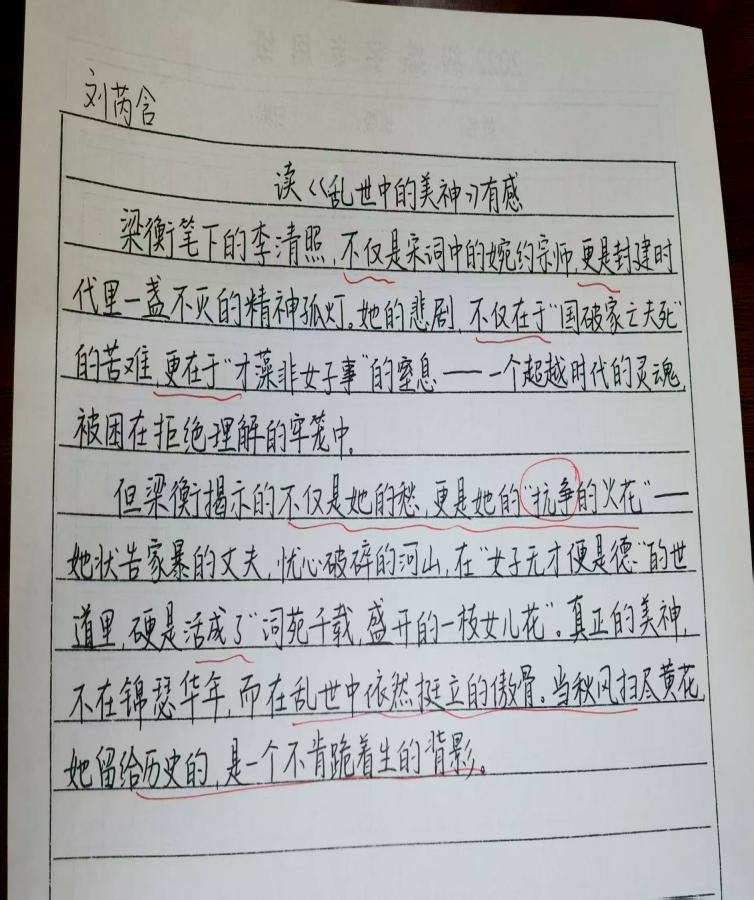 刘芮含
读《乱世中的美神》有感
梁衡笔下的李清照,不仅是宋词中的婉约宗师,更是封建时
代里一盏不灭的精神孤灯。她的悲剧,不仅在于"国破家亡夫死"
的苦难,更在于"才藻非女子事"的窒息——一个超越时代的灵魂,
被困在拒绝理解的牢笼中。
但梁衡揭示的不仅是她的愁,更是她的"抗争的火花"——
她状告家暴的丈夫,忧心破碎的河山,在"女子无才便是德"的世
道里,硬是活成了"词苑千载,盛开的一枝女儿花"。真正的美神,
不在锦瑟华年,而在乱世中依然挺立的傲骨。当秋风扫尽黄花,
她留给历史的,是一个不肯跪着生的背影。